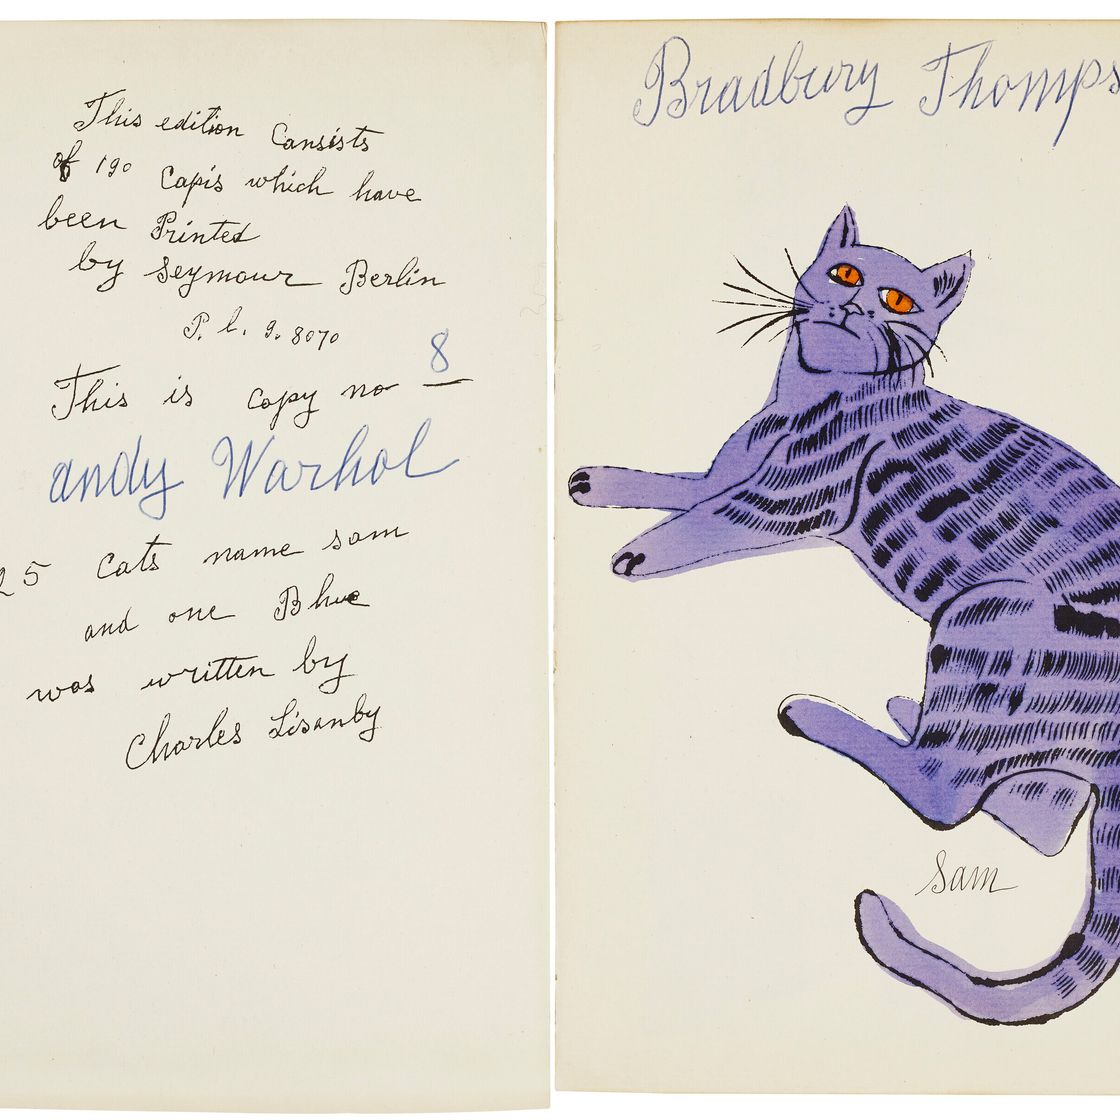 This edition Cansists
of 190 Capis which have
been Printed
by Seymour Berlin
P. L. 9. 8070
This is copy no 8
andy Warhol
25 Cats name sam
and one Blue
was written by
Charles Lisanby
Bradbury Thomps
Sam